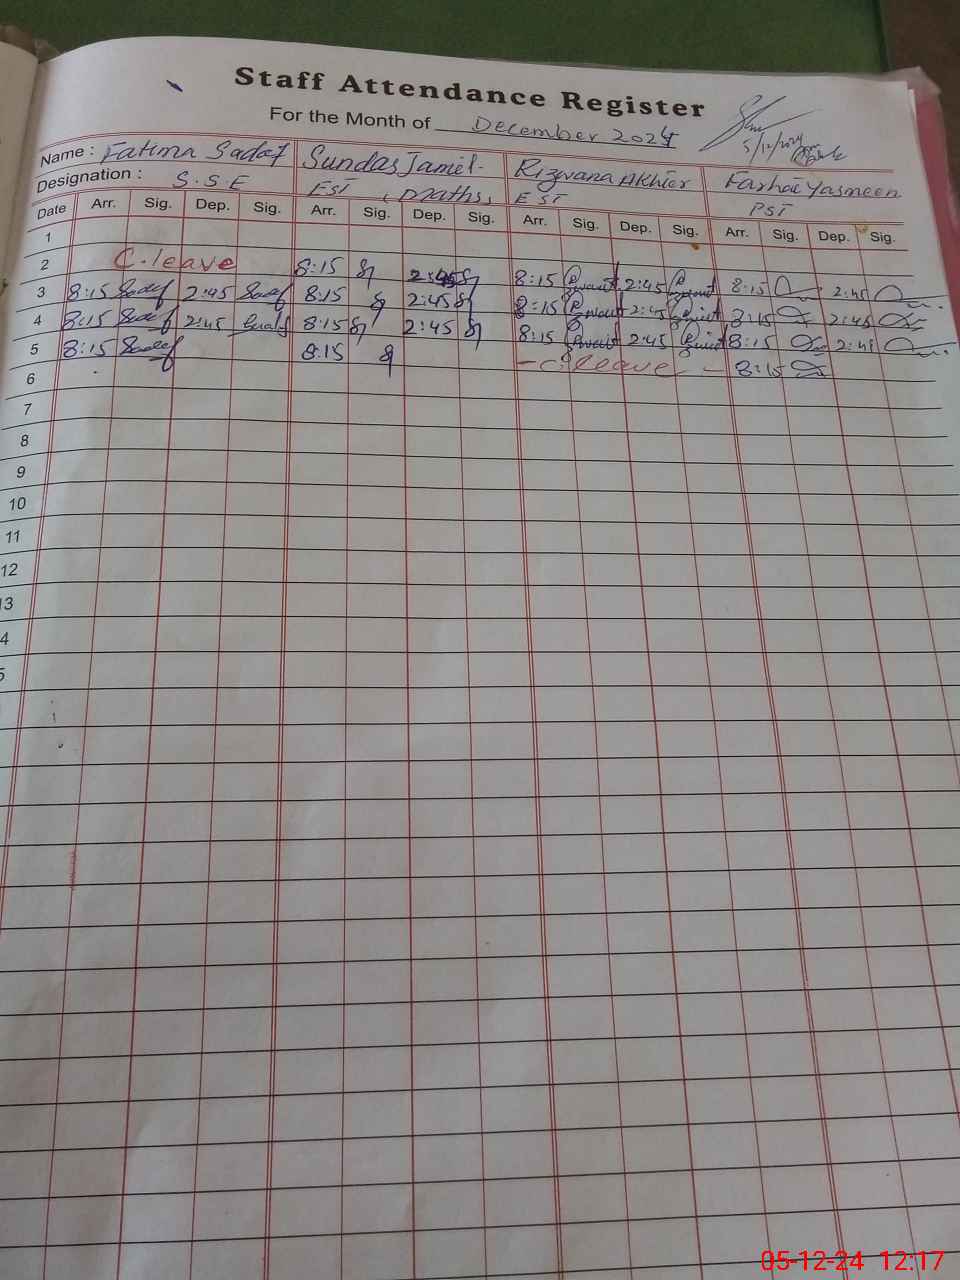 Staff Attendance Register
For the Month of December 2024
5/12/2024
Name : Fatima Sadaf Sundas Jamil Rizwana Akhtar Farhat Yasmeen
Designation : S.S.E EST (Maths) EST PST
Date Arr. Sig. Dep. Sig. Arr. Sig. Dep. Sig. Arr. Sig. Dep. Sig. Arr. Sig. Dep. Sig.
1
2 C.leave 8:15 2:45 8:15 2:45 8:15 2:45
3 8:15 Sadaf 2:45 Sadaf 8:15 2:45 8:15 2:45 8:15 2:45
4 8:15 Sadaf 2:45 Sadaf 8:15 2:45 8:15 2:45 8:15 2:45
5 8:15 Sadaf 8:15 - C.leave - 8:15
6
7
8
9
10
11
12
13
4
5
05-12-24 12:17